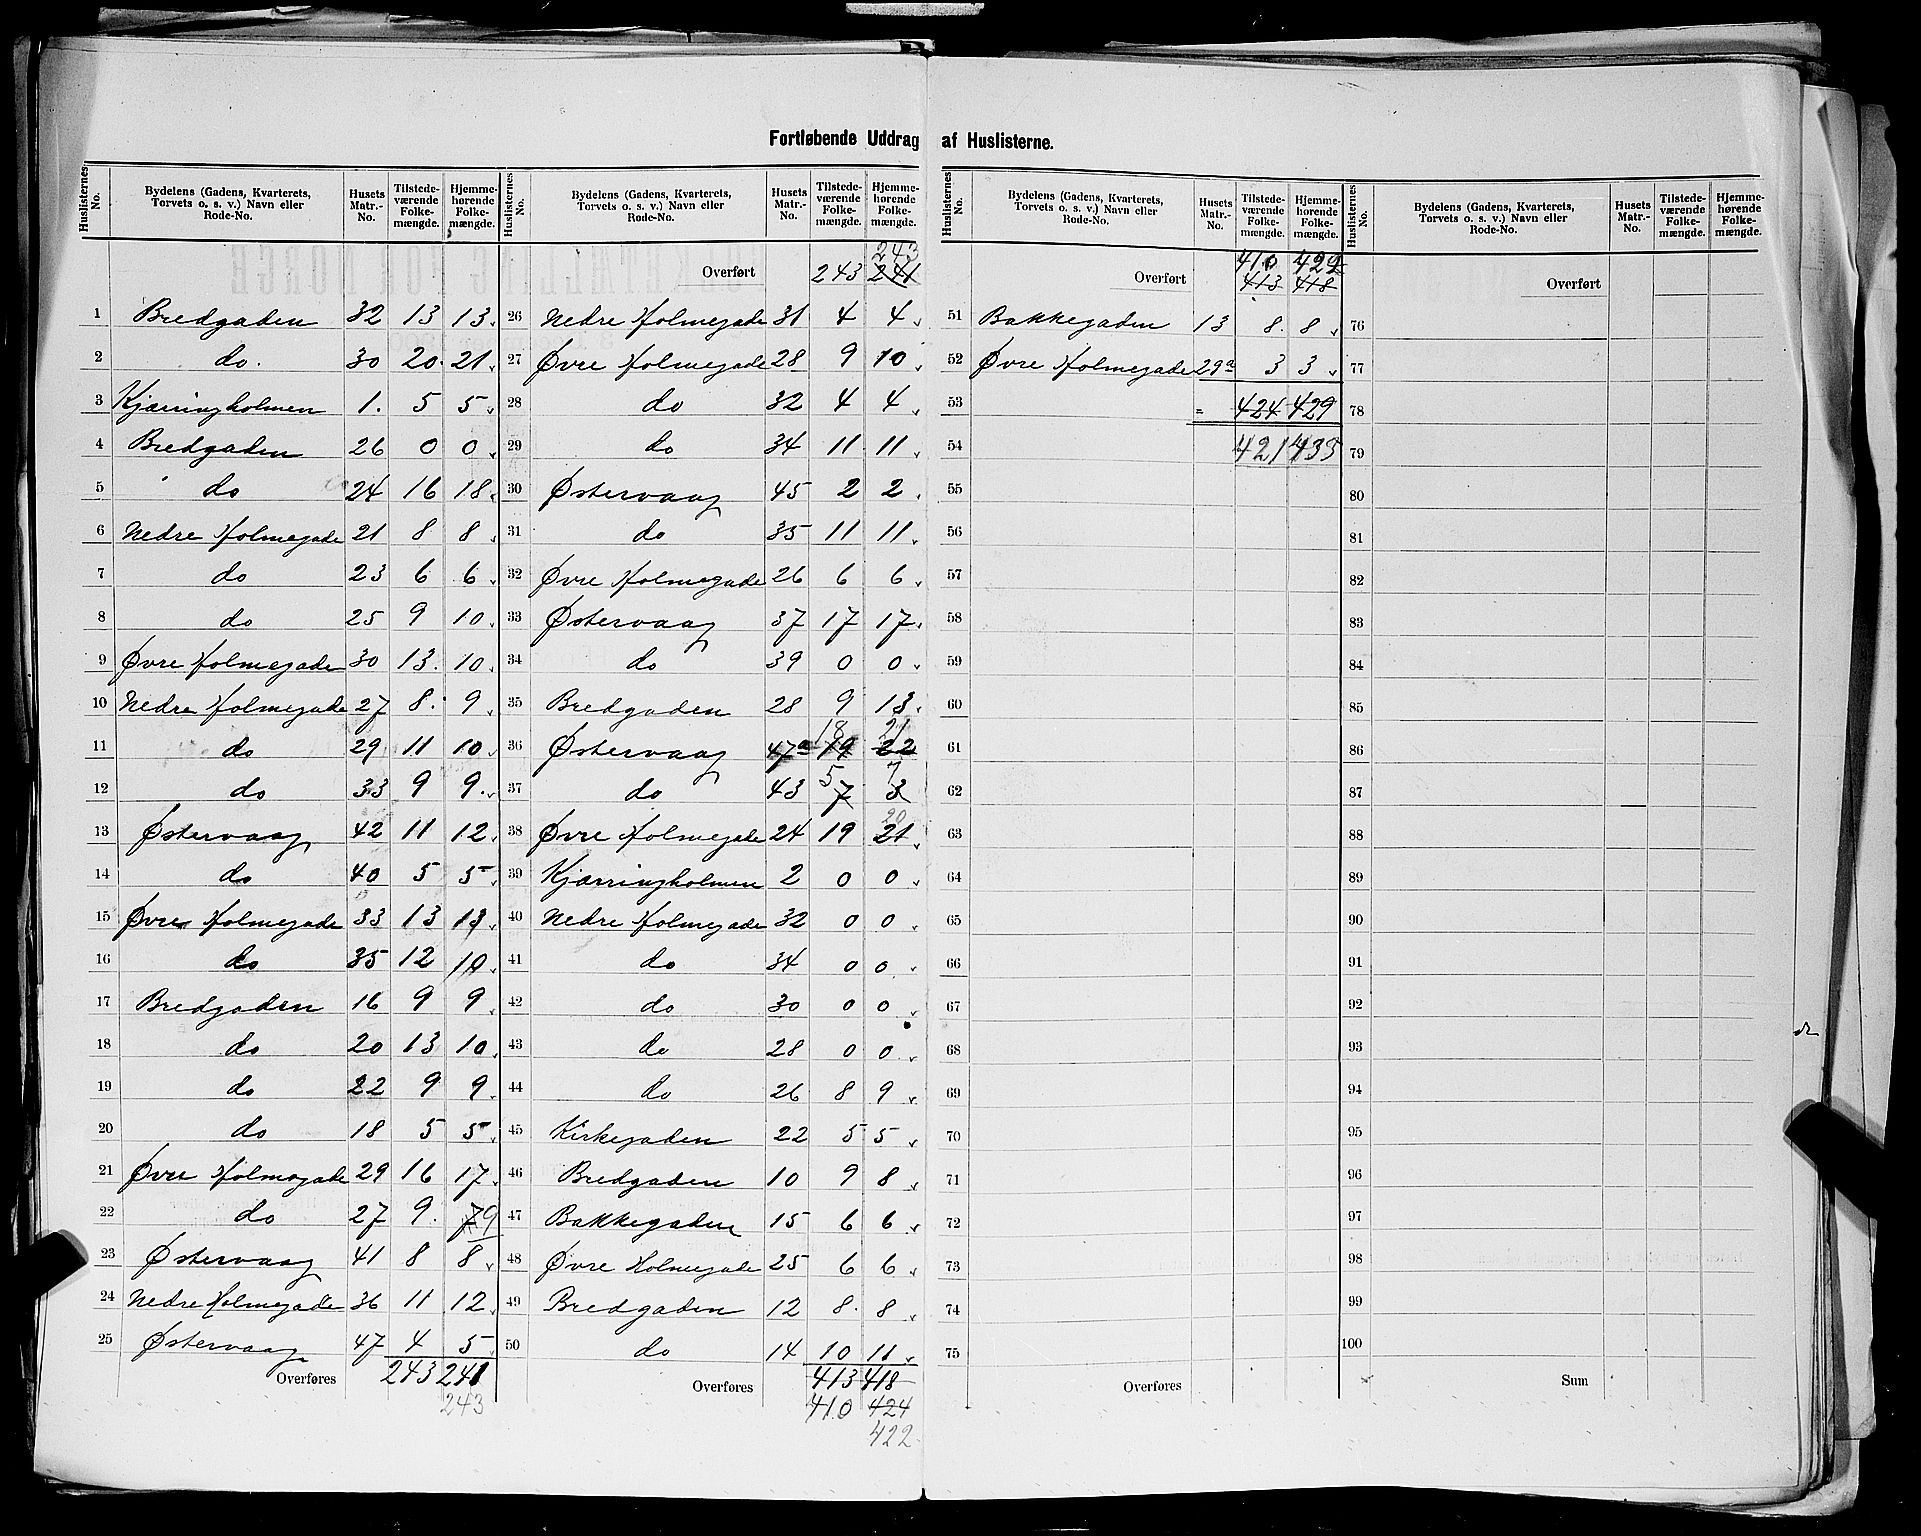 Fortløbende Uddrag af Huslisterne.
Huslisternes No. | Bydelens (Gadens, Kvarterets, Torvets o. s. v.) Navn eller Rode-No. | Husets Matr.-No. | Tilstedeværende Folkemængde. | Hjemmehørende Folkemængde.
1 Bredgaden 32 13 13
2 do. 30 20 21
3 Kjærringholmen 1. 5 5
4 Bredgaden 26 0 0
5 do 24 16 18
6 Nedre Holmegade 21 8 8
7 do 23 6 6
8 do 25 9 10
9 Øvre Holmegade 30 13 10
10 Nedre Holmegade 27 8 9
11 do 29 11 10
12 do 33 9 9
13 Østervaag 42 11 12
14 do 40 5 5
15 Øvre Holmegade 33 13 13
16 do 35 12 10
17 Bredgaden 16 9 9
18 do 20 13 10
19 do 22 9 9
20 do 18 5 5
21 Øvre Holmegade 29 16 17
22 do 27 9 7 9
23 Østervaag 41 8 8
24 Nedre Holmegade 36 11 12
25 Østervaag 47 4 5
Overføres 243 241
243
Huslisternes No. | Bydelens (Gadens, Kvarterets, Torvets o. s. v.) Navn eller Rode-No. | Husets Matr.-No. | Tilstedeværende Folkemængde. | Hjemmehørende Folkemængde.
243
Overført 243 241
26 Nedre Holmegade 31 4 4
27 Øvre Holmegade 28 9 10
28 do 32 4 4
29 do 34 11 11
30 Østervaag 45 2 2
31 do 35 11 11
32 Øvre Holmegade 26 6 6
33 Østervaag 37 17 17
34 do 39 0 0
35 Bredgaden 28 9 13
18 21
36 Østervaag 47a 19 22
5 7
37 do 43 7 3
20
38 Øvre Holmegade 24 19 21
39 Kjærringholmen 2 0 0
40 Nedre Holmegade 32 0 0
41 do 34 0 0
42 do 30 0 0
43 do 28 0 0
44 do 26 8 9
45 Kirkegaden 22 5 5
46 Bredgaden 10 9 8
47 Bakkegaden 15 6 6
48 Øvre Holmegade 25 6 6
49 Bredgaden 12 8 8
50 do 14 10 11
Overføres 413 418
410 424
422
Huslisternes No. | Bydelens (Gadens, Kvarterets, Torvets o. s. v.) Navn eller Rode-No. | Husets Matr.-No. | Tilstedeværende Folkemængde. | Hjemmehørende Folkemængde.
410 422
Overført 413 418
51 Bakkegaden 13 8 8
52 Øvre Holmegade 29a 3 3
53 = 424 429
54 421 433
55
56
57
58
59
60
61
62
63
64
65
66
67
68
69
70
71
72
73
74
75
Overføres
Huslisternes No. | Bydelens (Gadens, Kvarterets, Torvets o. s. v.) Navn eller Rode-No. | Husets Matr.-No. | Tilstedeværende Folkemængde. | Hjemmehørende Folkemængde.
Overført
76
77
78
79
80
81
82
83
84
85
86
87
88
89
90
91
92
93
94
95
96
97
98
99
100
Sum